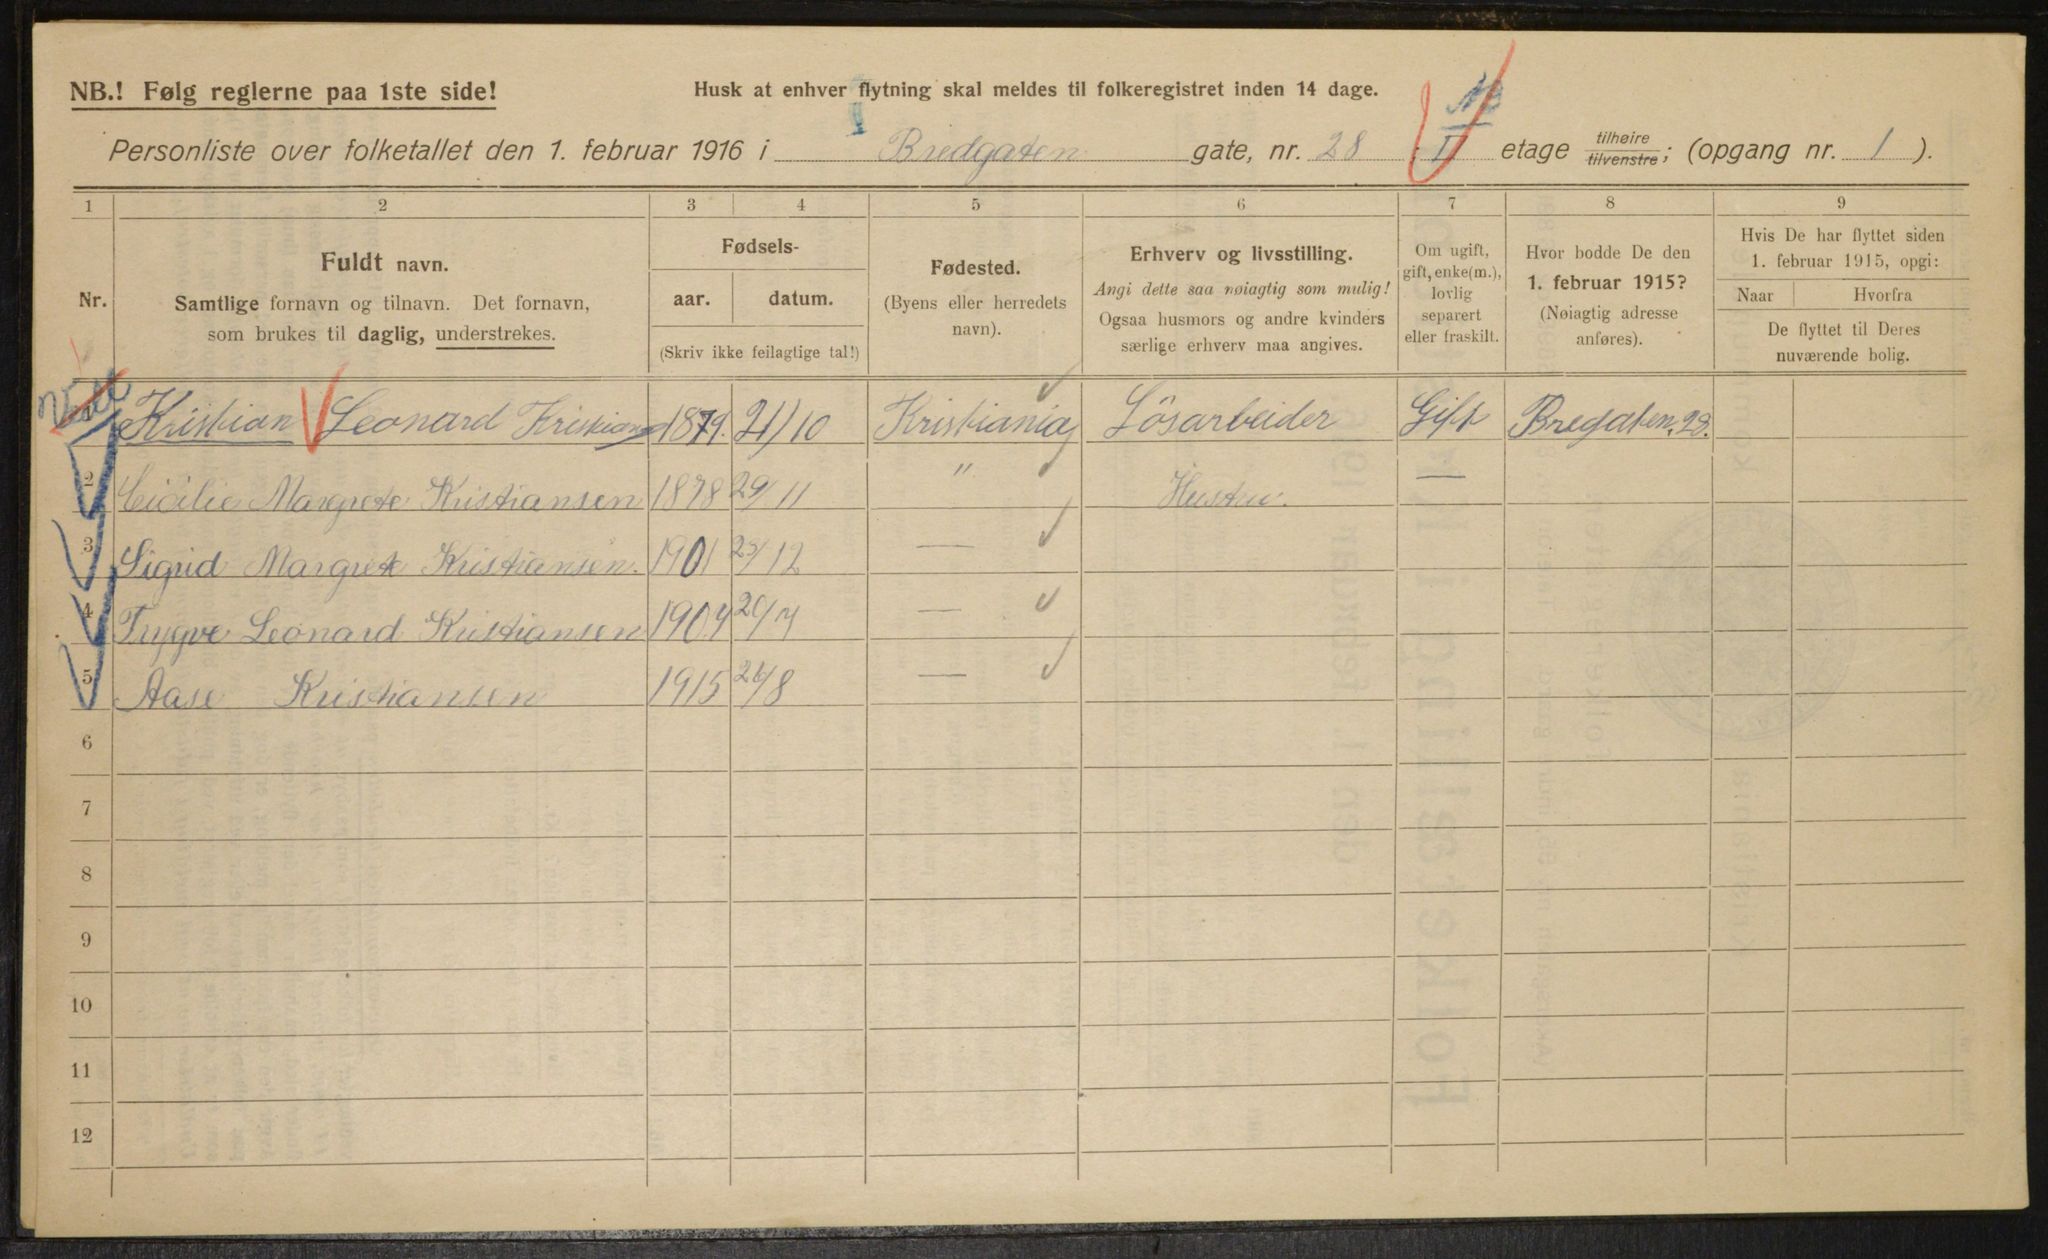 NB.! Følg reglerne paa 1ste side!
Husk at enhver flytning skal meldes til folkeregistret inden 14 dage.
Personliste over folketallet den 1. februar 1916 i Bredgaten gate, nr. 28 ; II etage tilhøire tilvenstre; (opgang nr. 1 ).
1 2 3 4 5 6 7 8 9
Nr.
Fuldt navn.
Samtlige fornavn og tilnavn. Det fornavn,
som brukes til daglig, understrekes.
Fødsels-
aar. datum.
(Skriv ikke feilagtige tal!)
Fødested.
(Byens eller herredets
navn).
Erhverv og livsstilling.
Angi dette saa nøiagtig som mulig!
Ogsaa husmors og andre kvinders
særlige erhverv maa angives.
Om ugift,
gift, enke(m.),
lovlig
separert
eller fraskilt.
Hvor bodde De den
1. februar 1915?
(Nøiagtig adresse
anføres).
Hvis De har flyttet siden
1. februar 1915, opgi:
Naar Hvorfra
De flyttet til Deres
nuværende bolig.
Kristian Leonard Kristians 1879. 21/10 Kristiania Lösarbeider Gift Bregaten. 28.
2 Cicilie Margrete Kristiansen 1878 29/11 " Hustru. —
3 Sigrid Margrete Kristiansen. 1901 /12 —
4 Trygve Leonard Kristiansen 1904 —
5 Aase Kristiansen 1915 26/8 —
6
7
8
9
10
11
12